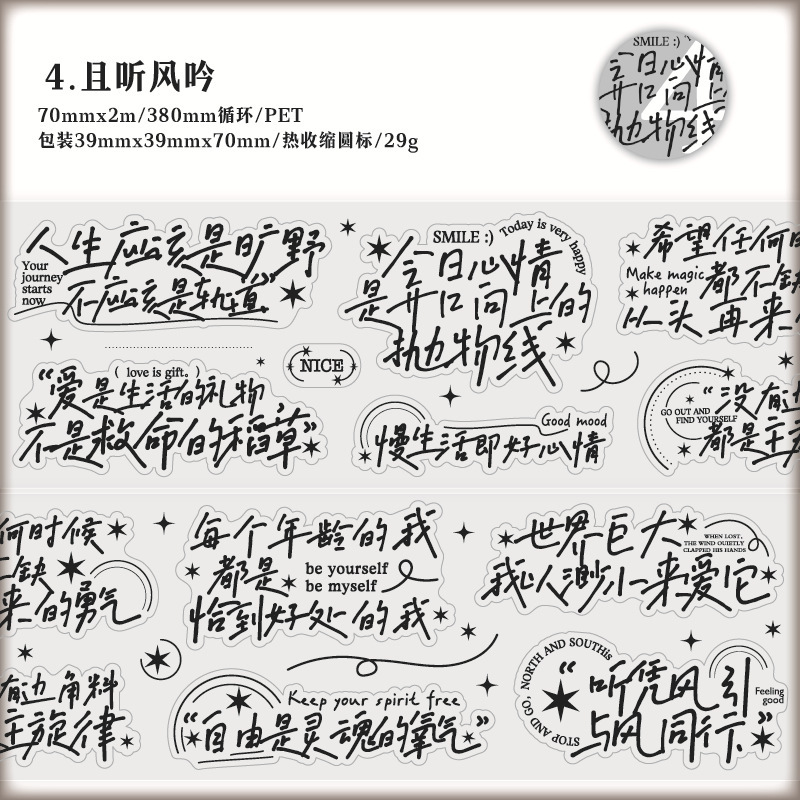 4.且听风吟
70mmx2m/380mm循环/PET
包装39mmx39mmx70mm/热收缩圆标/29g
SMILE :)
今日心情
开口向上
抛物线
人生应该是旷野
Your
journey
starts
now
不应该是轨道”
SMILE :)
Today is very happy
今日心情
是开口向上的
抛物线
希望任何时
Make magic
happen
都不缺
从头再来
( love is gift。)
“爱是生活的礼物
不是救命的稻草”
NICE
Good mood
慢生活即好心情
GO OUT AND
FIND YOURSELF
“没有边
都是主方
何时候
缺
来的勇气
每个年龄的我
都是
be yourself
be myself
恰到好处的我
世界巨大
WHEN LOST,
THE WIND QUIETLY
CLAPPED HIS HANDS
我以渺小来爱它
有边角料
主旋律
Keep your spirit free
“自由是灵魂的氧气”
STOP AND GO, NORTH AND SOUTHis
“听凭风引
与风同行”
Feeling
good